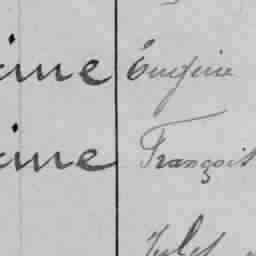 ine Eugénie
ine François
Jules